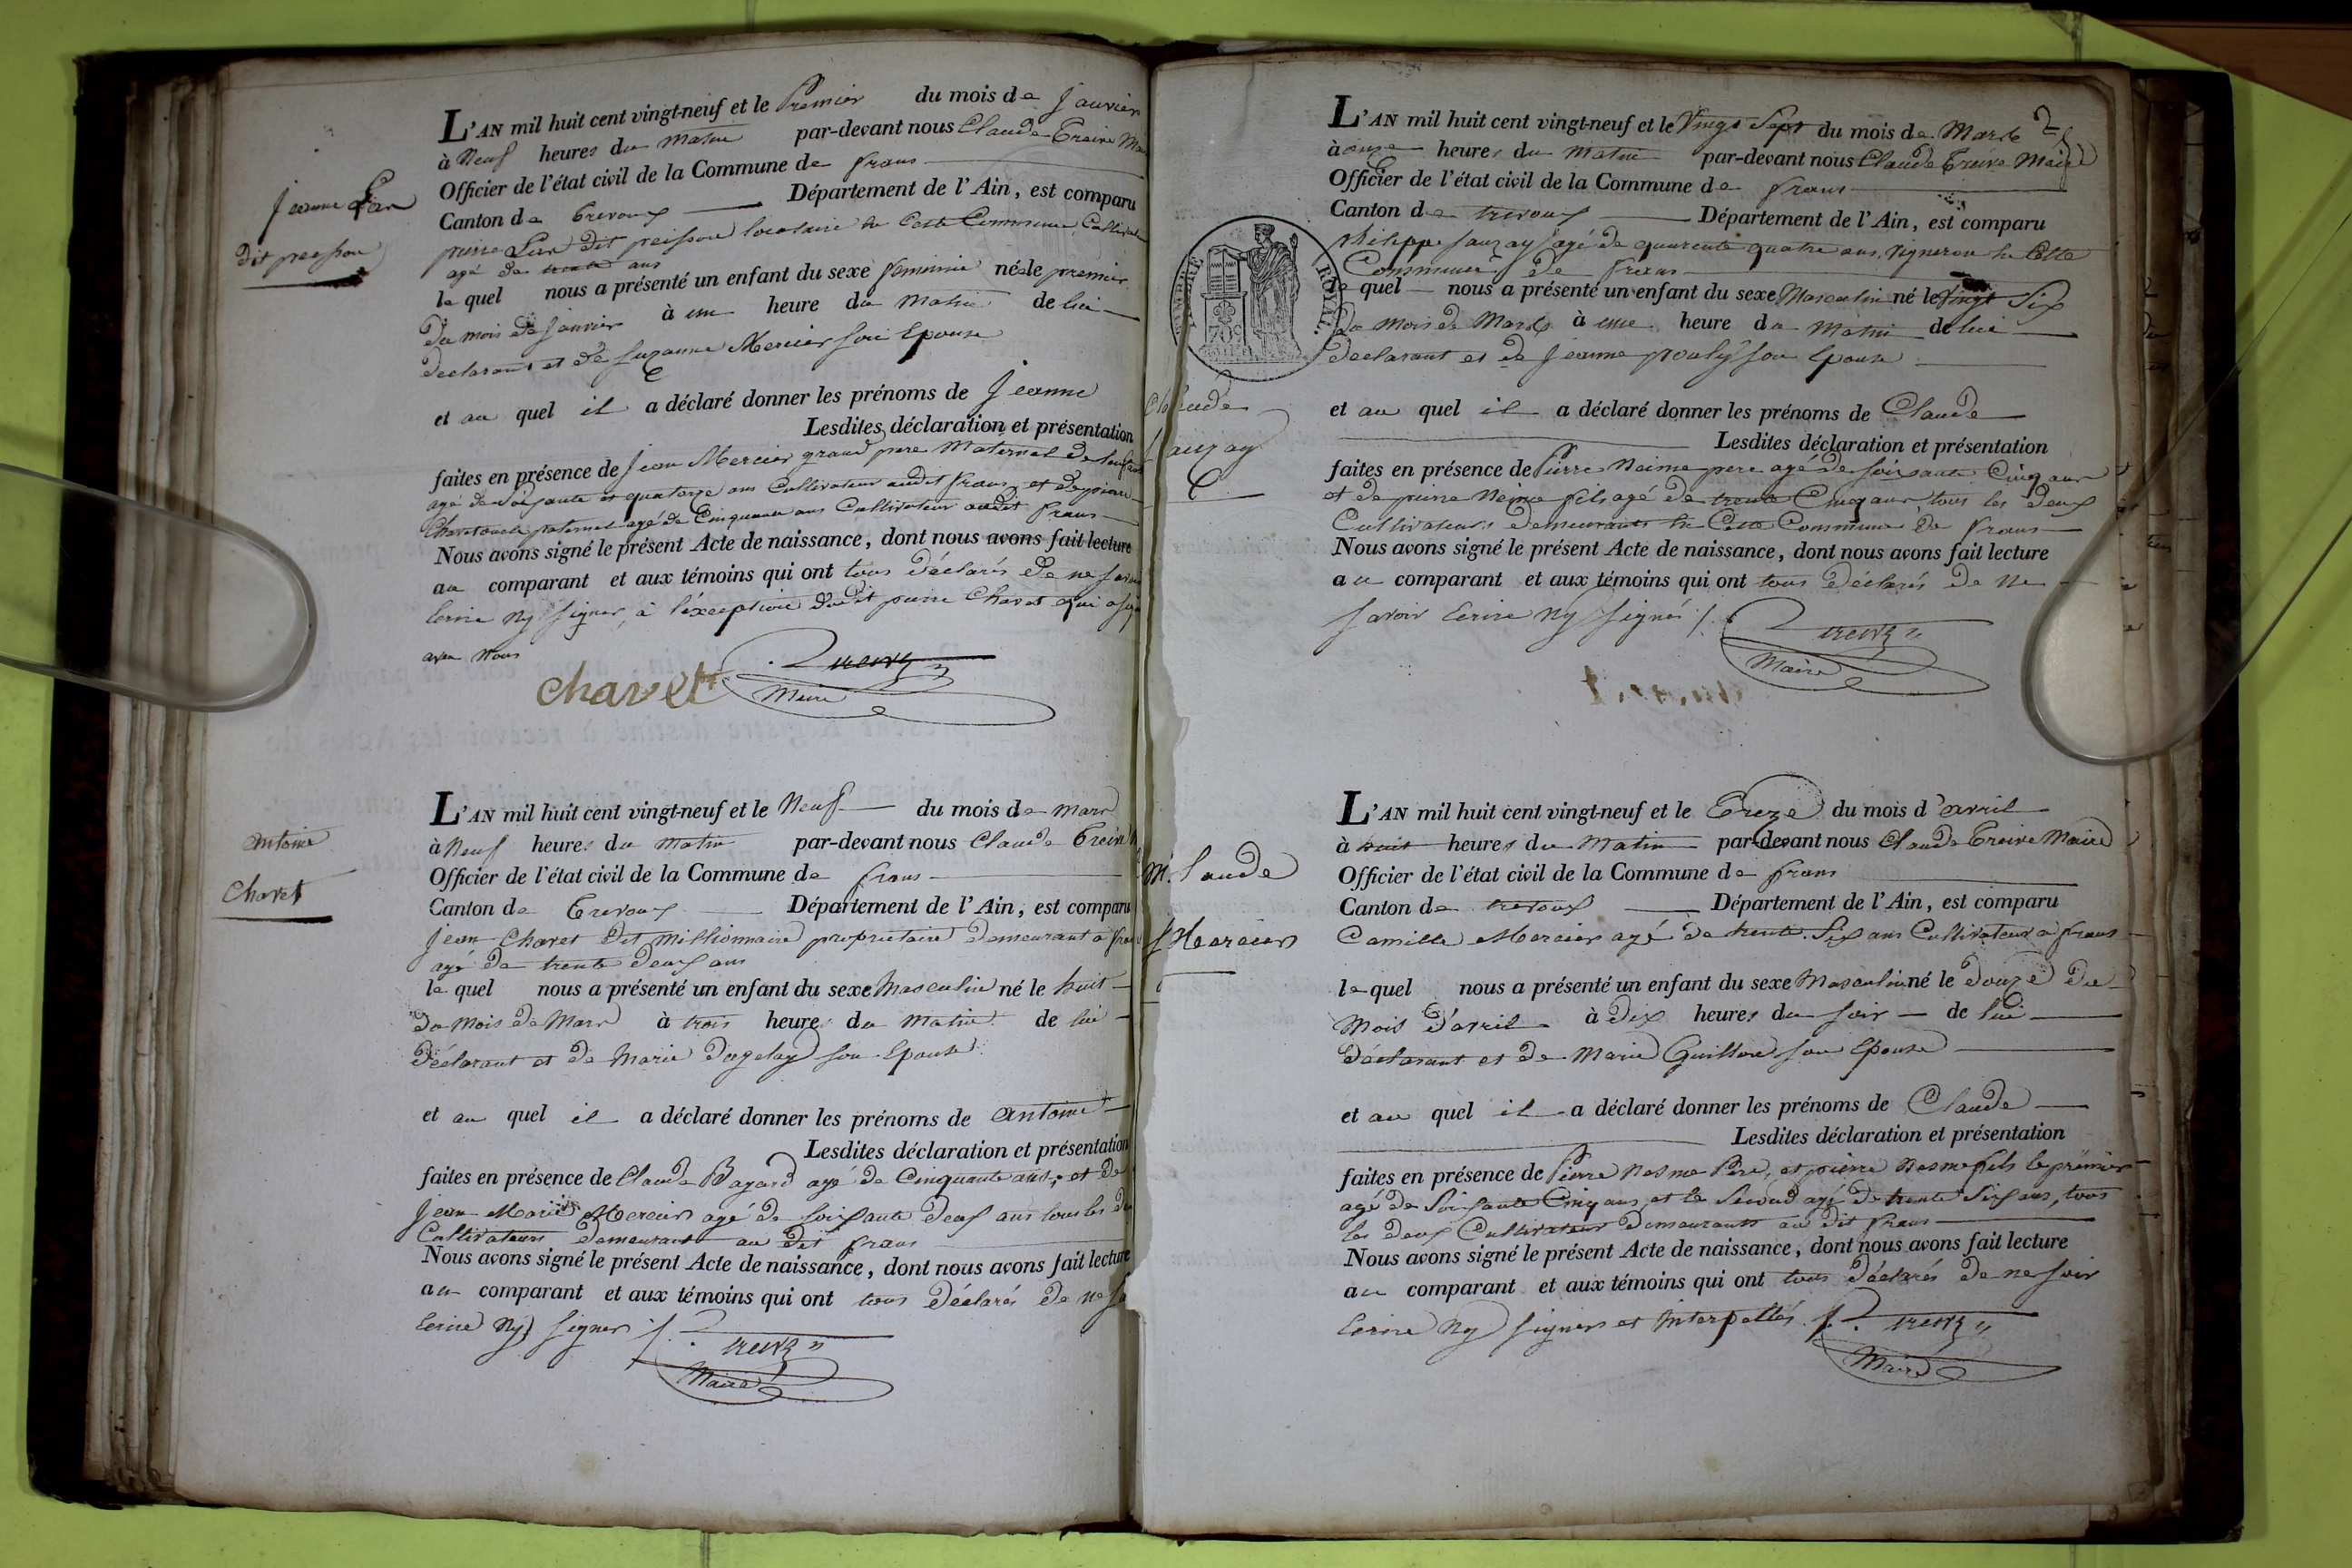 Jeanne
dit peisson
L'AN mil huit cent vingt-neuf et le Premier du mois de Janvier
à Neuf heures du Matin par-devant nous Claude Treive
Officier de l'état civil de la Commune de frans
Canton de Trevoux Département de l'Ain, est comparu
pierre dit peisson locataire de Cette Commune,
agé de trente ans
le quel nous a présenté un enfant du sexe feminin née le premier
du mois de Janvier à une heure du Matin de lui
declarant et de Suzanne Mercier son Epouse
et au quel il a déclaré donner les prénoms de Jeanne
Lesdites déclaration et présentation
faites en présence de Jean Mercier grand pere Maternel de
agé de Soixante et quatorze ans Cultivateur audit frans, et de pierre
Chavet oncle paternel agé de Cinquante ans Cultivateur audit frans
Nous avons signé le présent Acte de naissance, dont nous avons fait lecture
au comparant et aux témoins qui ont tous déclarés de ne
Ecrire Ny Signer, à l'éxception dudit pierre Chavet qui a
avec Nous
Chavet Treive
Maire
Antoine
Chavet
L'AN mil huit cent vingt-neuf et le Neuf du mois de Mars
à Neuf heures du Matin par-devant nous Claude Treive
Officier de l'état civil de la Commune de frans
Canton de Trevoux Département de l'Ain, est comparu
Jean Chavet dit Millionnaire proprietaire demeurant à
agé de trente deux ans
le quel nous a présenté un enfant du sexe Masculin né le huit
du Mois de Mars à trois heures du Matin de lui
déclarant et de Marie dugelay son Epouse
et au quel il a déclaré donner les prénoms de Antoine
Lesdites déclaration et présentation
faites en présence de Claude Bayard agé de Cinquante ans, et de
Jean Marie Mercier agé de Soixante deux ans tous les
Cultivateurs demeurant au dit frans
Nous avons signé le présent Acte de naissance, dont nous avons fait lecture
au comparant et aux témoins qui ont tous déclarés de ne
Ecrire Ny Signer
Treive
Maire
2
TIMBRE ROYAL.
Claude
Sauzay
L'AN mil huit cent vingt-neuf et le Vingt Sept du mois de Mars
à onze heures du Matin par-devant nous Claude Treive Maire
Officier de l'état civil de la Commune de frans
Canton de trevoux Département de l'Ain, est comparu
philippe Sauzay agé de quarente quatre ans, Vigneron de Cette
Commune de frans
le quel nous a présenté un enfant du sexe Masculin né le Vingt Six
du Mois de Mars à une heure du Matin de lui
declarant et de Jeanne pouly son Epouse
et au quel il a déclaré donner les prénoms de Claude
Lesdites déclaration et présentation
faites en présence de Pierre Neime pere agé de Soixante Cinq ans
et de pierre Neime fils agé de trente Cinq ans, tous les deux
Cultivateurs demeurants de Cette Commune de frans
Nous avons signé le présent Acte de naissance, dont nous avons fait lecture
au comparant et aux témoins qui ont tous déclarés de Ne
Savoir Ecrire Ny Signés
Treive
Maire
Claude
Mercier
L'AN mil huit cent vingt-neuf et le Treze du mois d'avril
à huit heures du Matin par-devant nous Claude Treive Maire
Officier de l'état civil de la Commune de frans
Canton de trevoux Département de l'Ain, est comparu
Camille Mercier agé de trente Six ans Cultivateur à frans
le quel nous a présenté un enfant du sexe Masculin né le douze du
Mois d'avril à dix heures du soir de lui
déclarant et de Marie Guillon son Epouse
et au quel il a déclaré donner les prénoms de Claude
Lesdites déclaration et présentation
faites en présence de Pierre Nesme Père, et pierre Nesme fils le premier
agé de Soixante Cinq ans, et le Second agé de trente Six ans, tous
les deux Cultivateur demeurants au dit frans
Nous avons signé le présent Acte de naissance, dont nous avons fait lecture
au comparant et aux témoins qui ont tous déclarés de ne Savoir
Ecrire Ny Signer et Interpellés
Treive
Maire